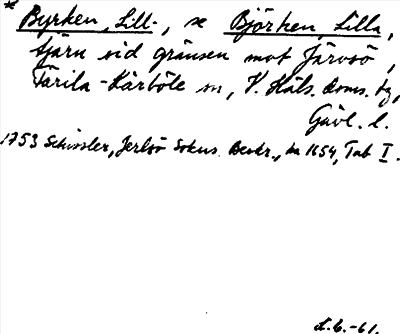 * Byrken, Lill-, se Björken, Lilla,
tjärn vid gränsen mot Järvsö,
Färila-Kårböle sn, V. Häls. doms. tg,
Gävl. l.
1753 Schissler, Jerlsö Sokns. Beskr., ka 1654, Tab I.
L.b.-61.